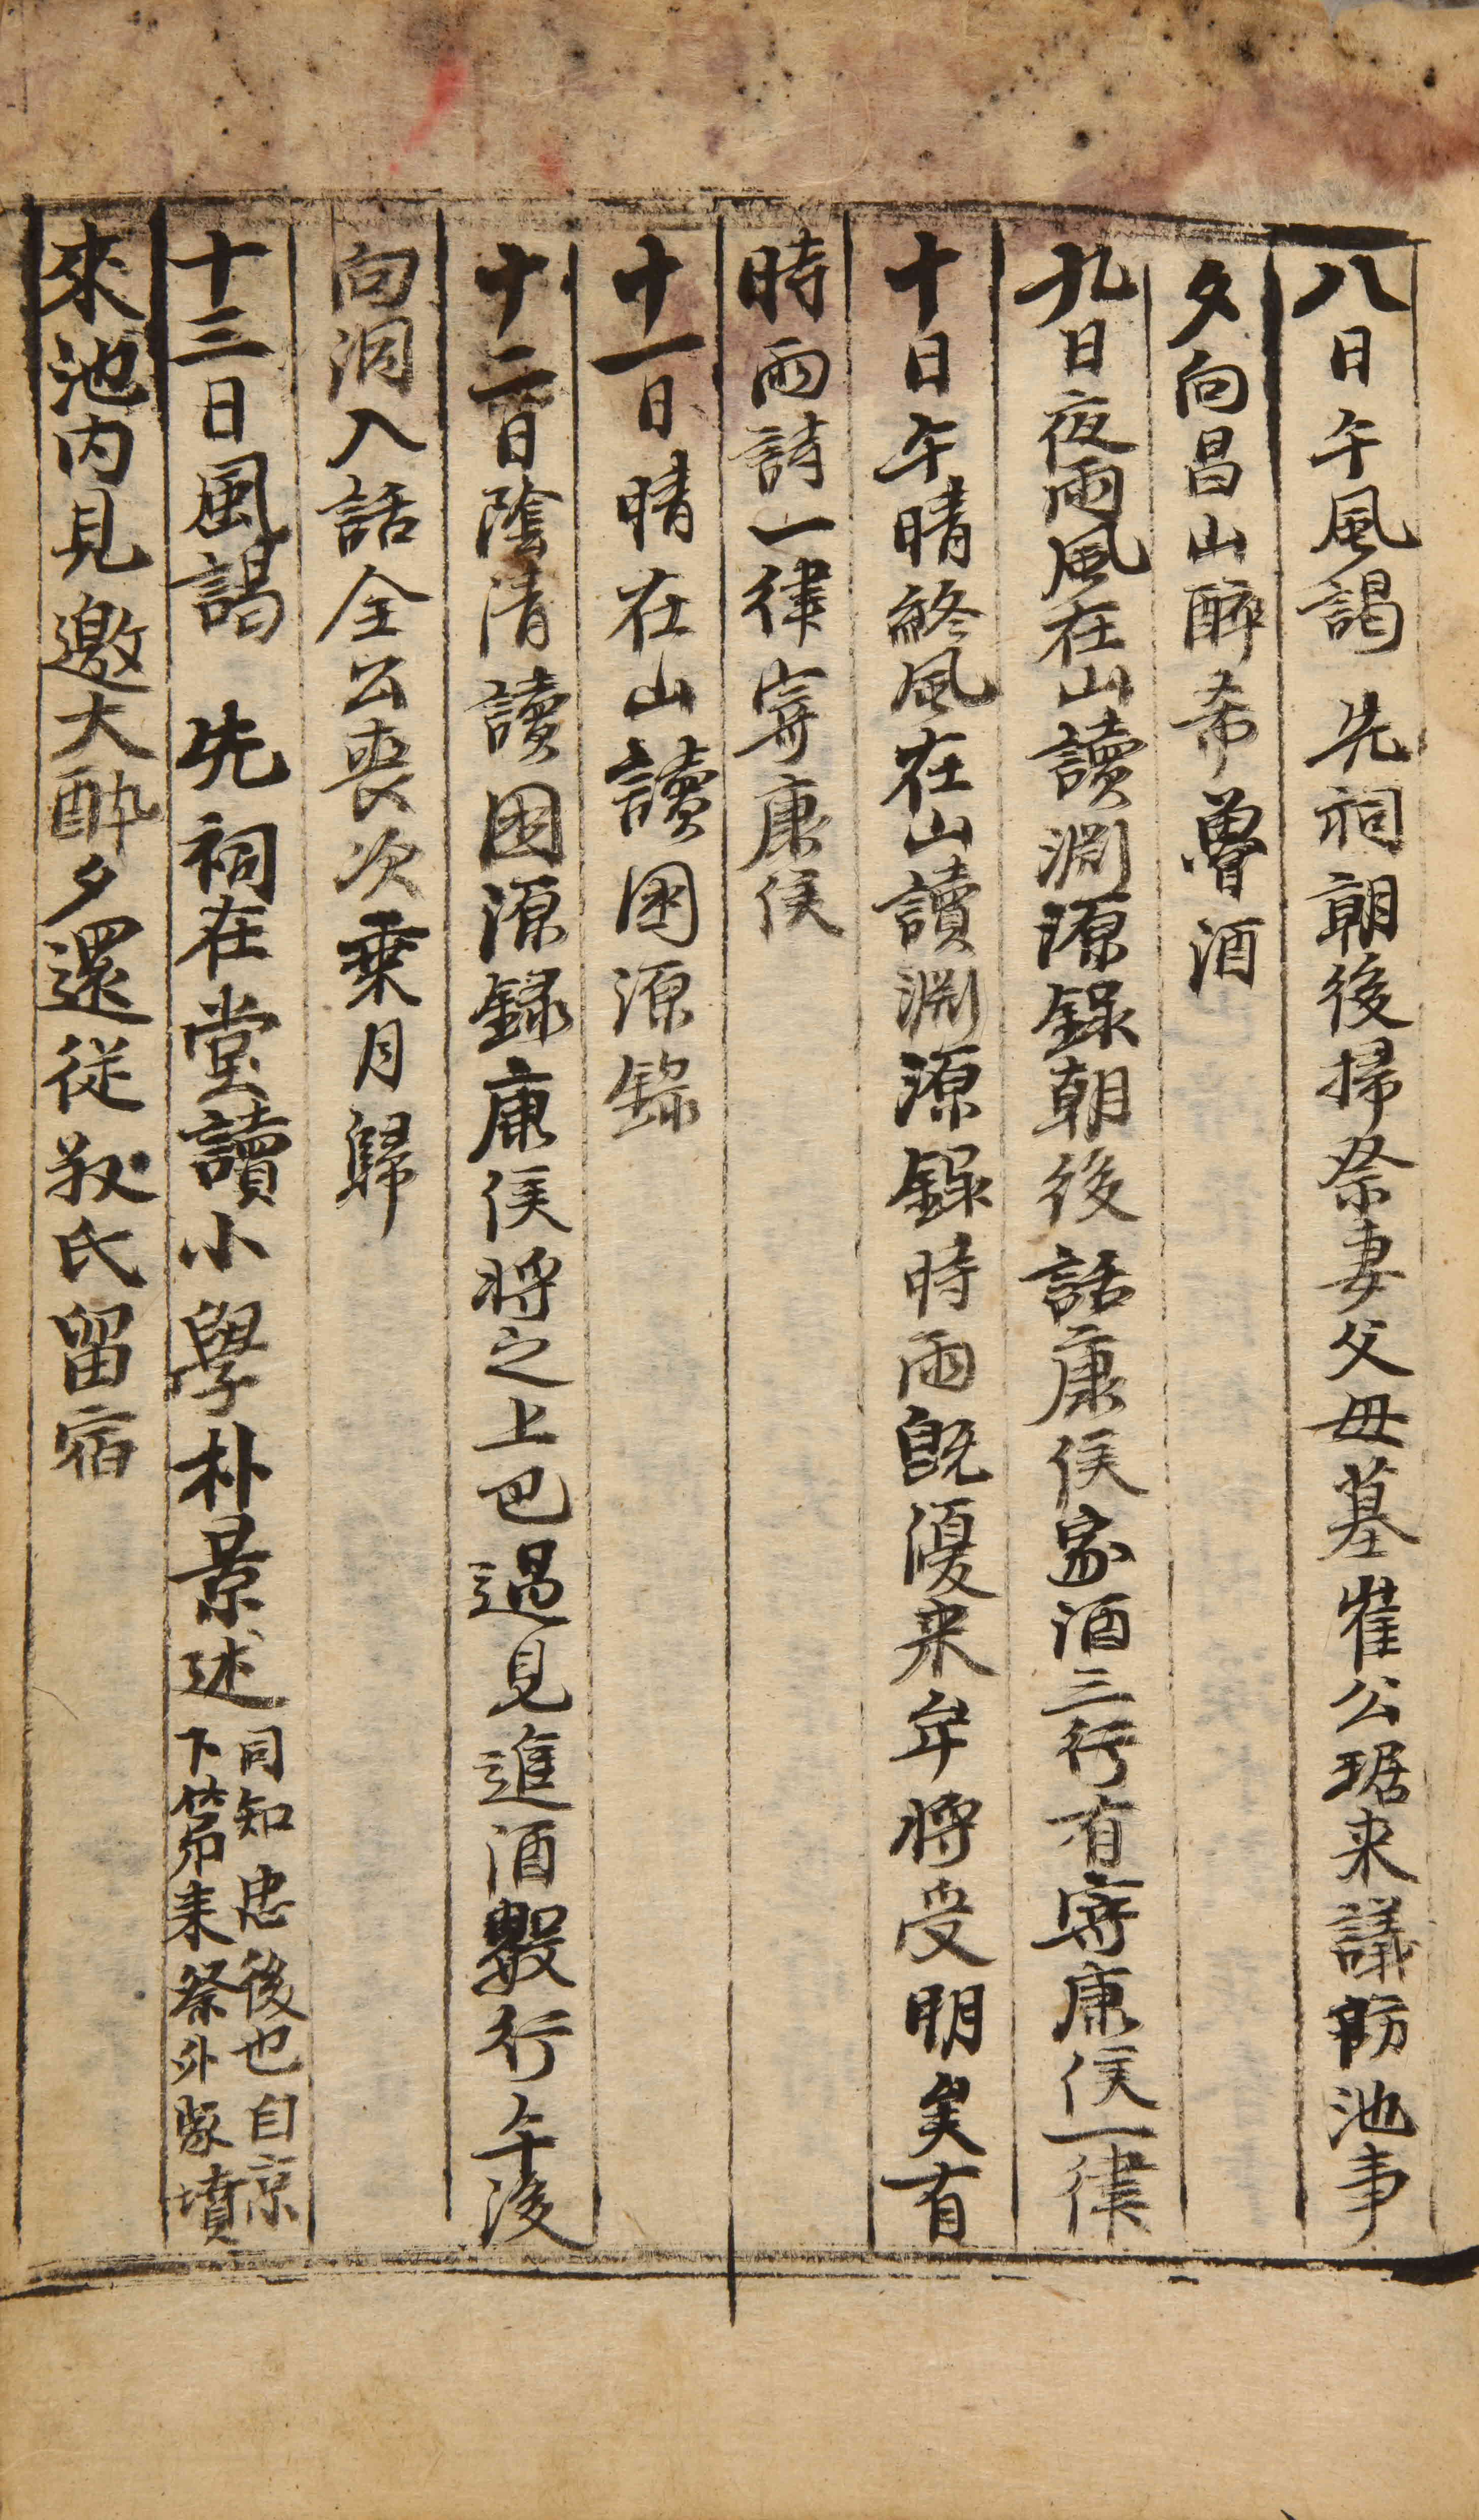 八日午風謁 先祠朝後掃祭妻父母墓崔公琚来議防池事
夕向昌山醉希魯酒
九日夜雨風在山讀淵源錄朝後話康侯家酒三行有寄康侯一律
十日午晴終風在山讀淵源錄時雨既優来牟將受明矣有
時雨詩一律寄康侯
十一日晴在山讀困源錄
十二日陰清讀困源録康侯將之上巴過見進酒數行午後
向洞入話全公喪次乗月歸
十三日風謁 先祠在堂讀小學朴景述
同知忠後也自京
下第来祭外家墳
來池内見邀大酔夕還従叔氏留宿